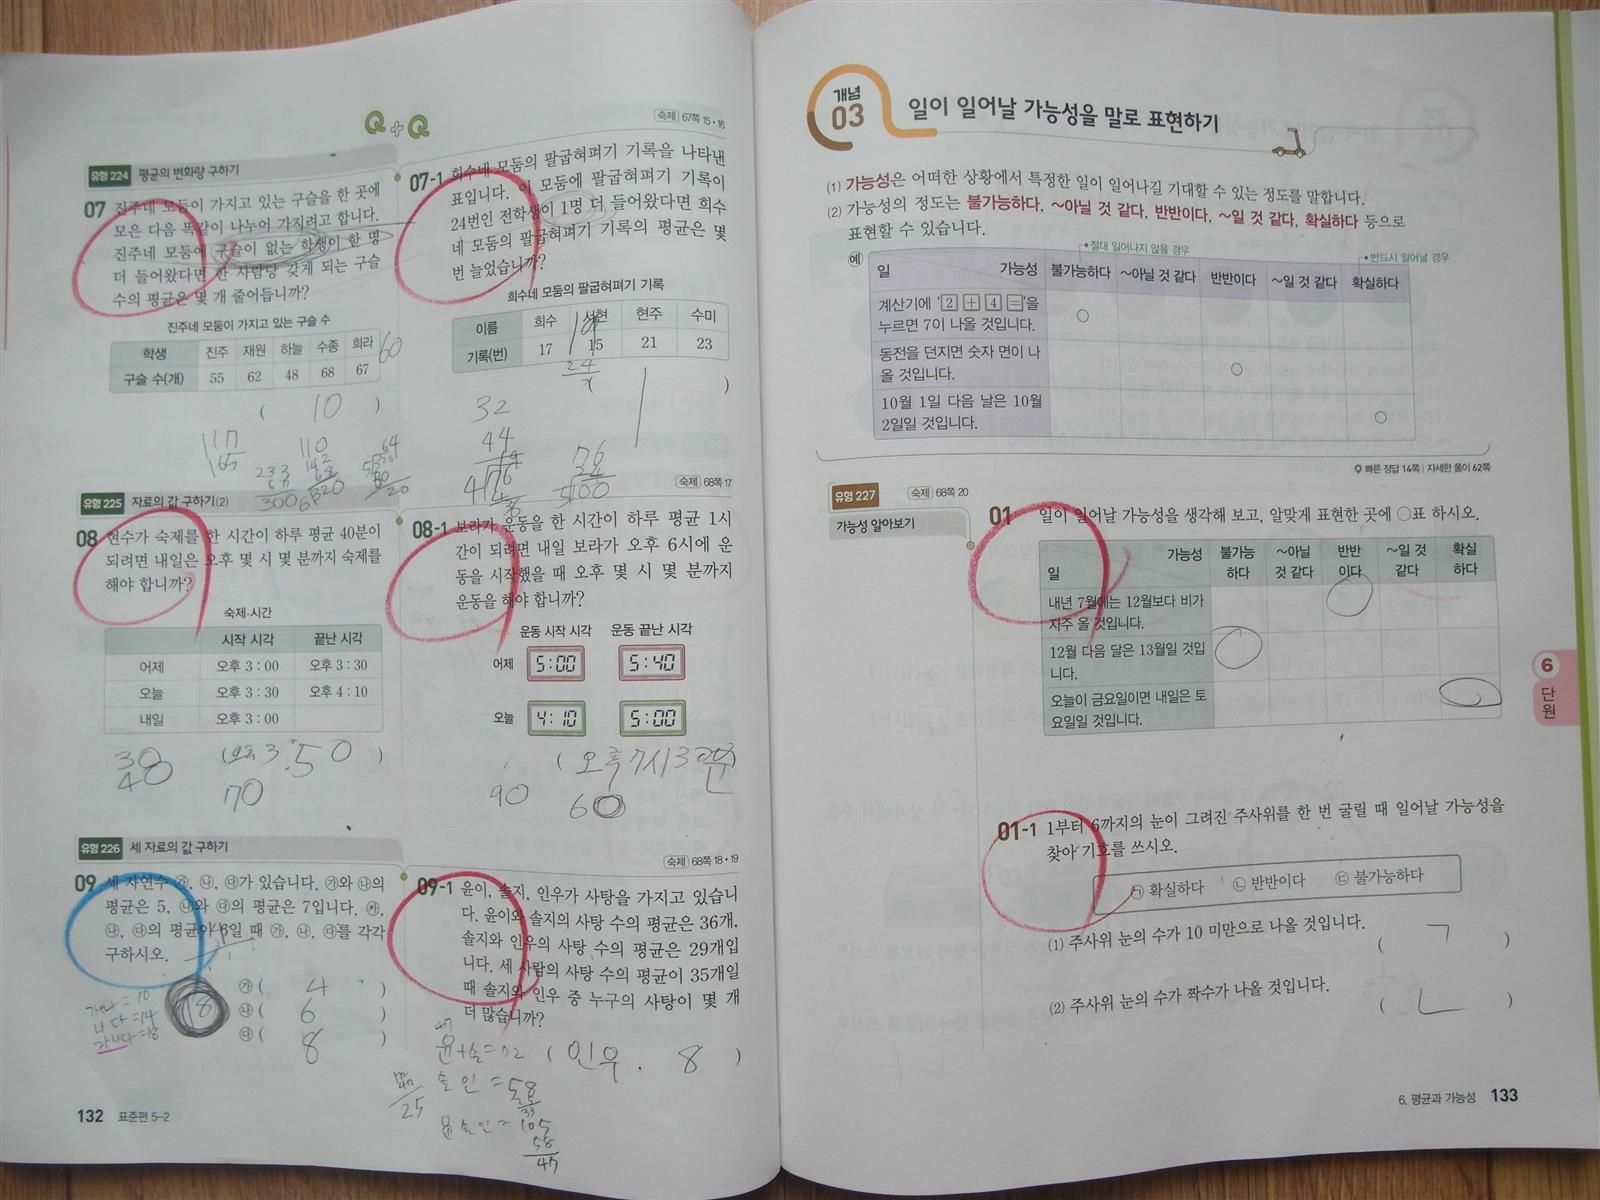 Q+Q
유형 224 평균의 변화량 구하기
07 진주네 모둠이 가지고 있는 구슬을 한 곳에
모은 다음 똑같이 나누어 가지려고 합니다.
진주네 모둠에 구슬이 없는 학생이 한 명
더 들어왔다면 한 사람당 갖게 되는 구슬
수의 평균은 몇 개 줄어듭니까?
진주네 모둠이 가지고 있는 구슬 수
학생 진주 재원 하늘 수종 희라
구슬 수(개) 55 62 48 68 67
60
( 10 )
117
165
110
142
64
300
숙제 67쪽 15·16
07-1 희수네 모둠의 팔굽혀펴기 기록을 나타낸
표입니다. 이 모둠에 팔굽혀펴기 기록이
24번인 전학생이 1명 더 들어왔다면 희수
네 모둠의 팔굽혀펴기 기록의 평균은 몇
번 늘었습니까?
희수네 모둠의 팔굽혀펴기 기록
이름 희수 서현 현주 수미
기록(번) 17 15 21 23
( 1 )
32
44
76
24
유형 225 자료의 값 구하기(2)
08 현수가 숙제를 한 시간이 하루 평균 40분이
되려면 내일은 오후 몇 시 몇 분까지 숙제를
해야 합니까?
숙제 시간
시작 시각 끝난 시각
어제 오후 3 : 00 오후 3 : 30
오늘 오후 3 : 30 오후 4 : 10
내일 오후 3 : 00
(오후 3.50 )
30
40
70
숙제 68쪽 17
08-1 보라가 운동을 한 시간이 하루 평균 1시
간이 되려면 내일 보라가 오후 6시에 운
동을 시작했을 때 오후 몇 시 몇 분까지
운동을 해야 합니까?
운동 시작 시각 운동 끝난 시각
어제 5:00 5:40
오늘 4:10 5:00
(오후 7시 30분)
90 60
유형 226 세 자료의 값 구하기
09 세 자연수 ㉮, ㉯, ㉰가 있습니다. ㉮와 ㉯의
평균은 5, ㉯와 ㉰의 평균은 7입니다. ㉮,
㉯, ㉰의 평균이 6일 때 ㉮, ㉯, ㉰를 각각
구하시오.
㉮ ( 4 )
㉯ ( 6 )
㉰ ( 8 )
가나=10
나다=14
가나다=18
18
숙제 68쪽 18·19
09-1 윤이, 솔지, 인우가 사탕을 가지고 있습니
다. 윤이와 솔지의 사탕 수의 평균은 36개,
솔지와 인우의 사탕 수의 평균은 29개입
니다. 세 사람의 사탕 수의 평균이 35개일
때 솔지와 인우 중 누구의 사탕이 몇 개
더 많습니까?
( 인우. 8 )
윤+솔=72
솔 인 = 58
윤솔인=105
58
47
25
132 표준편 5-2
개념 03 일이 일어날 가능성을 말로 표현하기
(1) 가능성은 어떠한 상황에서 특정한 일이 일어나길 기대할 수 있는 정도를 말합니다.
(2) 가능성의 정도는 불가능하다, ~아닐 것 같다, 반반이다, ~일 것 같다, 확실하다 등으로
표현할 수 있습니다.
절대 일어나지 않을 경우
반드시 일어날 경우
예
일 가능성 불가능하다 ~아닐 것 같다 반반이다 ~일 것 같다 확실하다
계산기에 '2 + 4 ='을
누르면 7이 나올 것입니다. ○
동전을 던지면 숫자 면이 나
올 것입니다. ○
10월 1일 다음 날은 10월
2일일 것입니다. ○
빠른 정답 14쪽 | 자세한 풀이 62쪽
유형 227 숙제 68쪽 20
가능성 알아보기
01 일이 일어날 가능성을 생각해 보고, 알맞게 표현한 곳에 ○표 하시오.
일 가능성 불가능하다 ~아닐 것 같다 반반이다 ~일 것 같다 확실하다
내년 7월에는 12월보다 비가
자주 올 것입니다.
12월 다음 달은 13월일 것입니
다.
오늘이 금요일이면 내일은 토
요일일 것입니다.
01-1 1부터 6까지의 눈이 그려진 주사위를 한 번 굴릴 때 일어날 가능성을
찾아 기호를 쓰시오.
㉠ 확실하다 ㉡ 반반이다 ㉢ 불가능하다
(1) 주사위 눈의 수가 10 미만으로 나올 것입니다.
( ㄱ )
(2) 주사위 눈의 수가 짝수가 나올 것입니다.
( ㄴ )
6 단원
6. 평균과 가능성 133